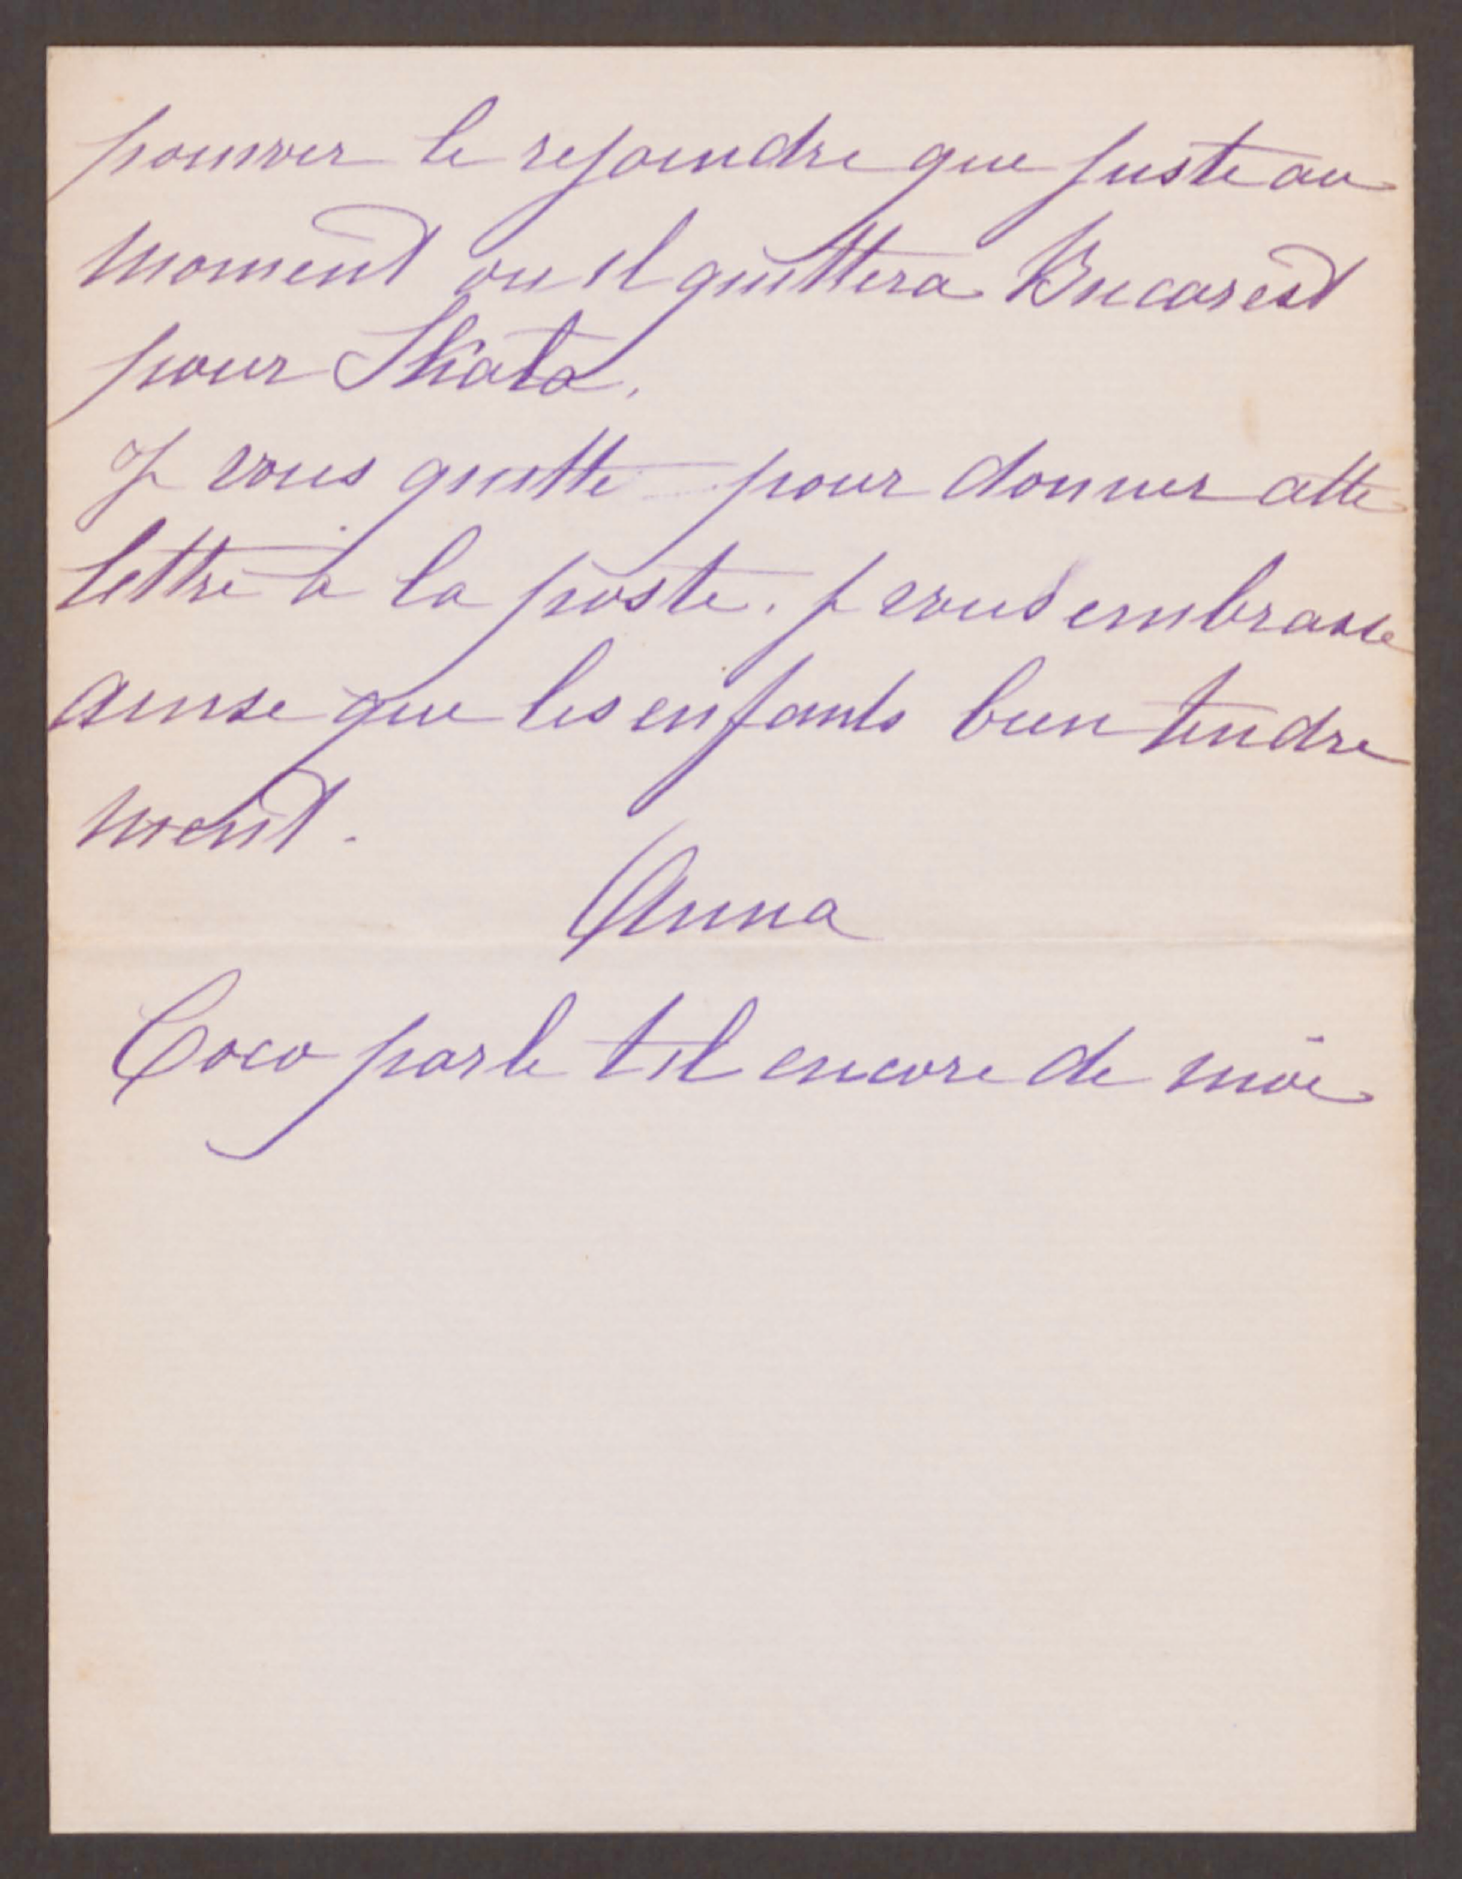 pouvoir le rejoindre que juste au
moment ou il quittera Bucarest
pour Skala.
Je vous quitte pour donner cette
lettre à la poste. Je vous embrasse
ainsi que les enfants bien tendre
ment.
Anna
Coco parle t il encore de moi